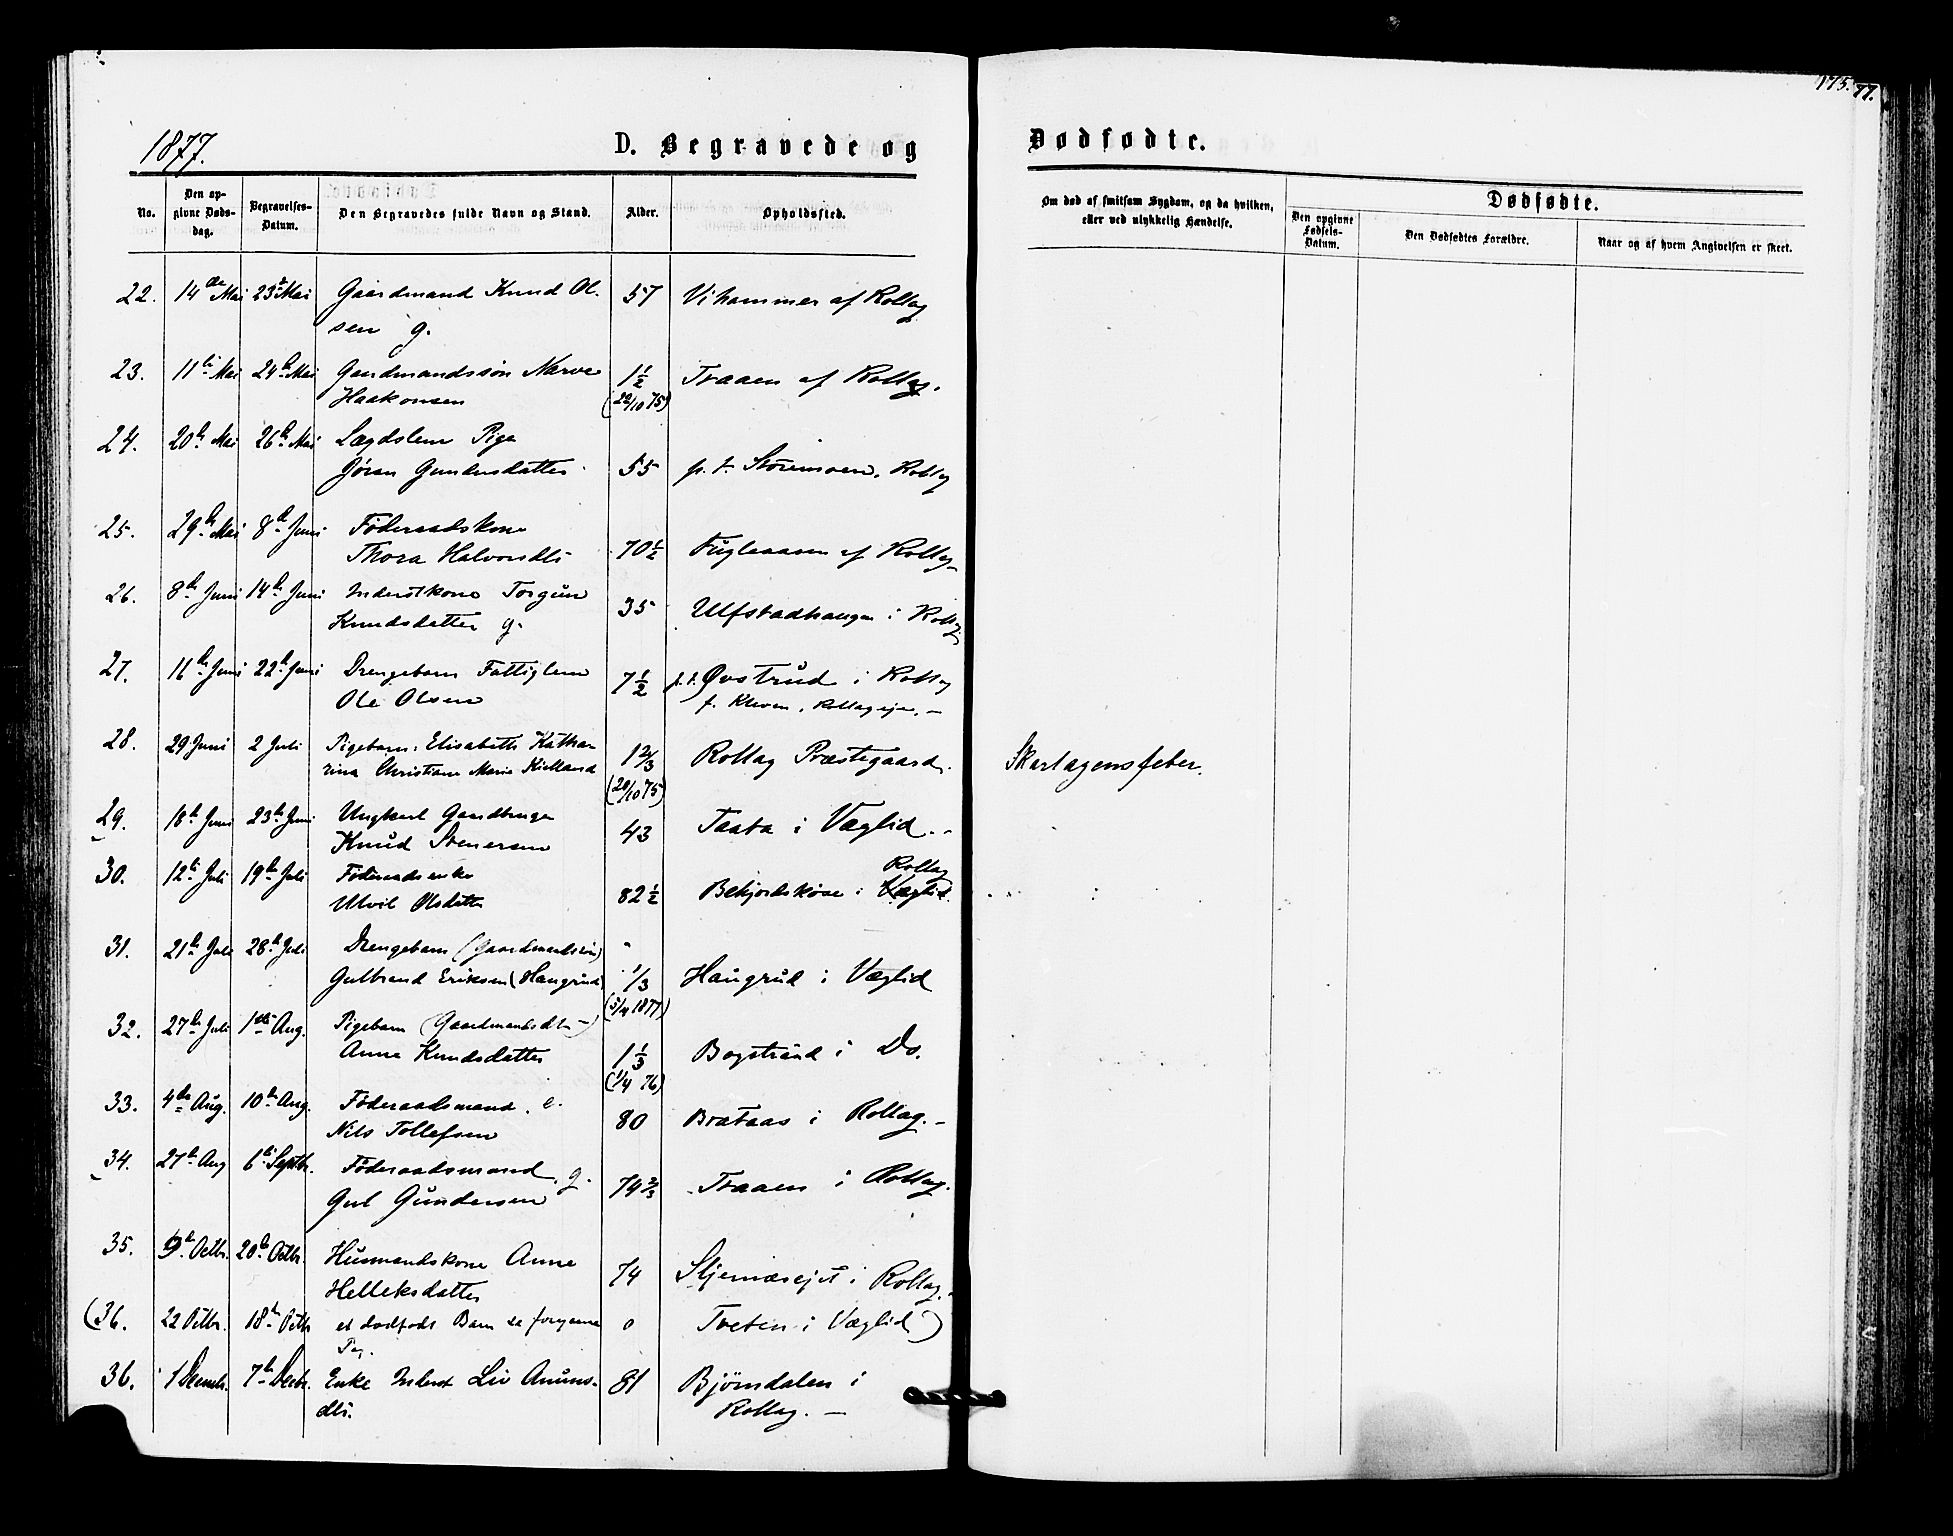 175. 77.
1877.
D. Begravede og Dødfødte.
No.
Den opgivne Døds-dag.
Begravelses-Datum.
Den Begravedes fulde Navn og Stand.
Alder.
Opholdssted.
Om død af smitsom Sygdom, og da hvilken, eller ved ulykkelig Hændelse.
Dødfødte.
Den opgivne Fødsels-Datum.
Den Dødfødtes Forældre.
Naar og af hvem Angivelsen er skeet.
22. 14de Mai 23de Mai Gaardmand Knud Ol- 57 Vihammer af Rollag
sen g.
23. 11te Mai 24de Mai Gaardmandssøn Narve 1 1/2 Traaen af Rollag.
Haakonsen (22/10 75)
24. 20de Mai 26de Mai Lægdslem Pige
Jøran Gundersdatter 55 p. t. Störemoen. Rollag
25. 29de Mai 8de Juni Föderaadskone
Thora Halvorsdtr 70 1/2 Fugleaasen af Rollag
26. 8de Juni 14de Juni Inderstkone Torgün
Knudsdatter g. 35 Ulfstadhaugen i Rollag
27. 16de Juni 22de Juni Drengebarn Fattiglem
Ole Olsen 7 1/2 p. t. Øvstrud i Rollag
f. Kleven, Rollageje. -
28. 29 Juni 2 Juli Pigebarn: Elisabeth Katha-
rina Christiane Marie Kielland 1 2/3 Rollag Præstegaard. Skarlagensfeber.
(20/10 75)
29. 18de Juni 23de Juni Ungkarl Gaardbruger
Knud Stenersen 43 Taata i Væglid.
30. 12te Juli 19de Juli Föderaadsenke Rollag
Ulvil Olsdatter 82 1/2 Bekjordskåse i Væglid.
31. 21de Juli 28de Juli Drengebarn (Gaardmandssön) "
Gulbrand Eriksen (Haugrud) 1/3 Haugrud i Væglid
(5/4 1877)
32. 27de Juli 1ste Aug. Pigebarn (Gaardmandsdtr -)
Anne Knudsdatter 1 1/3 Bogstrand i Do.
(1/4 76)
33. 4de Aug. 10de Aug. Föderaadsmand. e.
Nils Tollefsen 80 Brataas i Rollag. -
34. 27de Aug 6te Septbr. Föderaadsmand g.
Gul Gundersen 74 2/3 Traaen i Rollag.
35. 9de Octbr. 20de Octbr. Husmandskone Anne
Helleksdatter 74 Stjernesejet i Rollag.
(36. 22 Octbr. 18de Octbr et dødfødt Barn se forgaaende 0 Tveten i Væglid)
Pag.
36. 1 Decembr. 7de Decbr. Enke Inderst Liv Anuns- 81 Bjørndalen i
dtr. Rollag. -